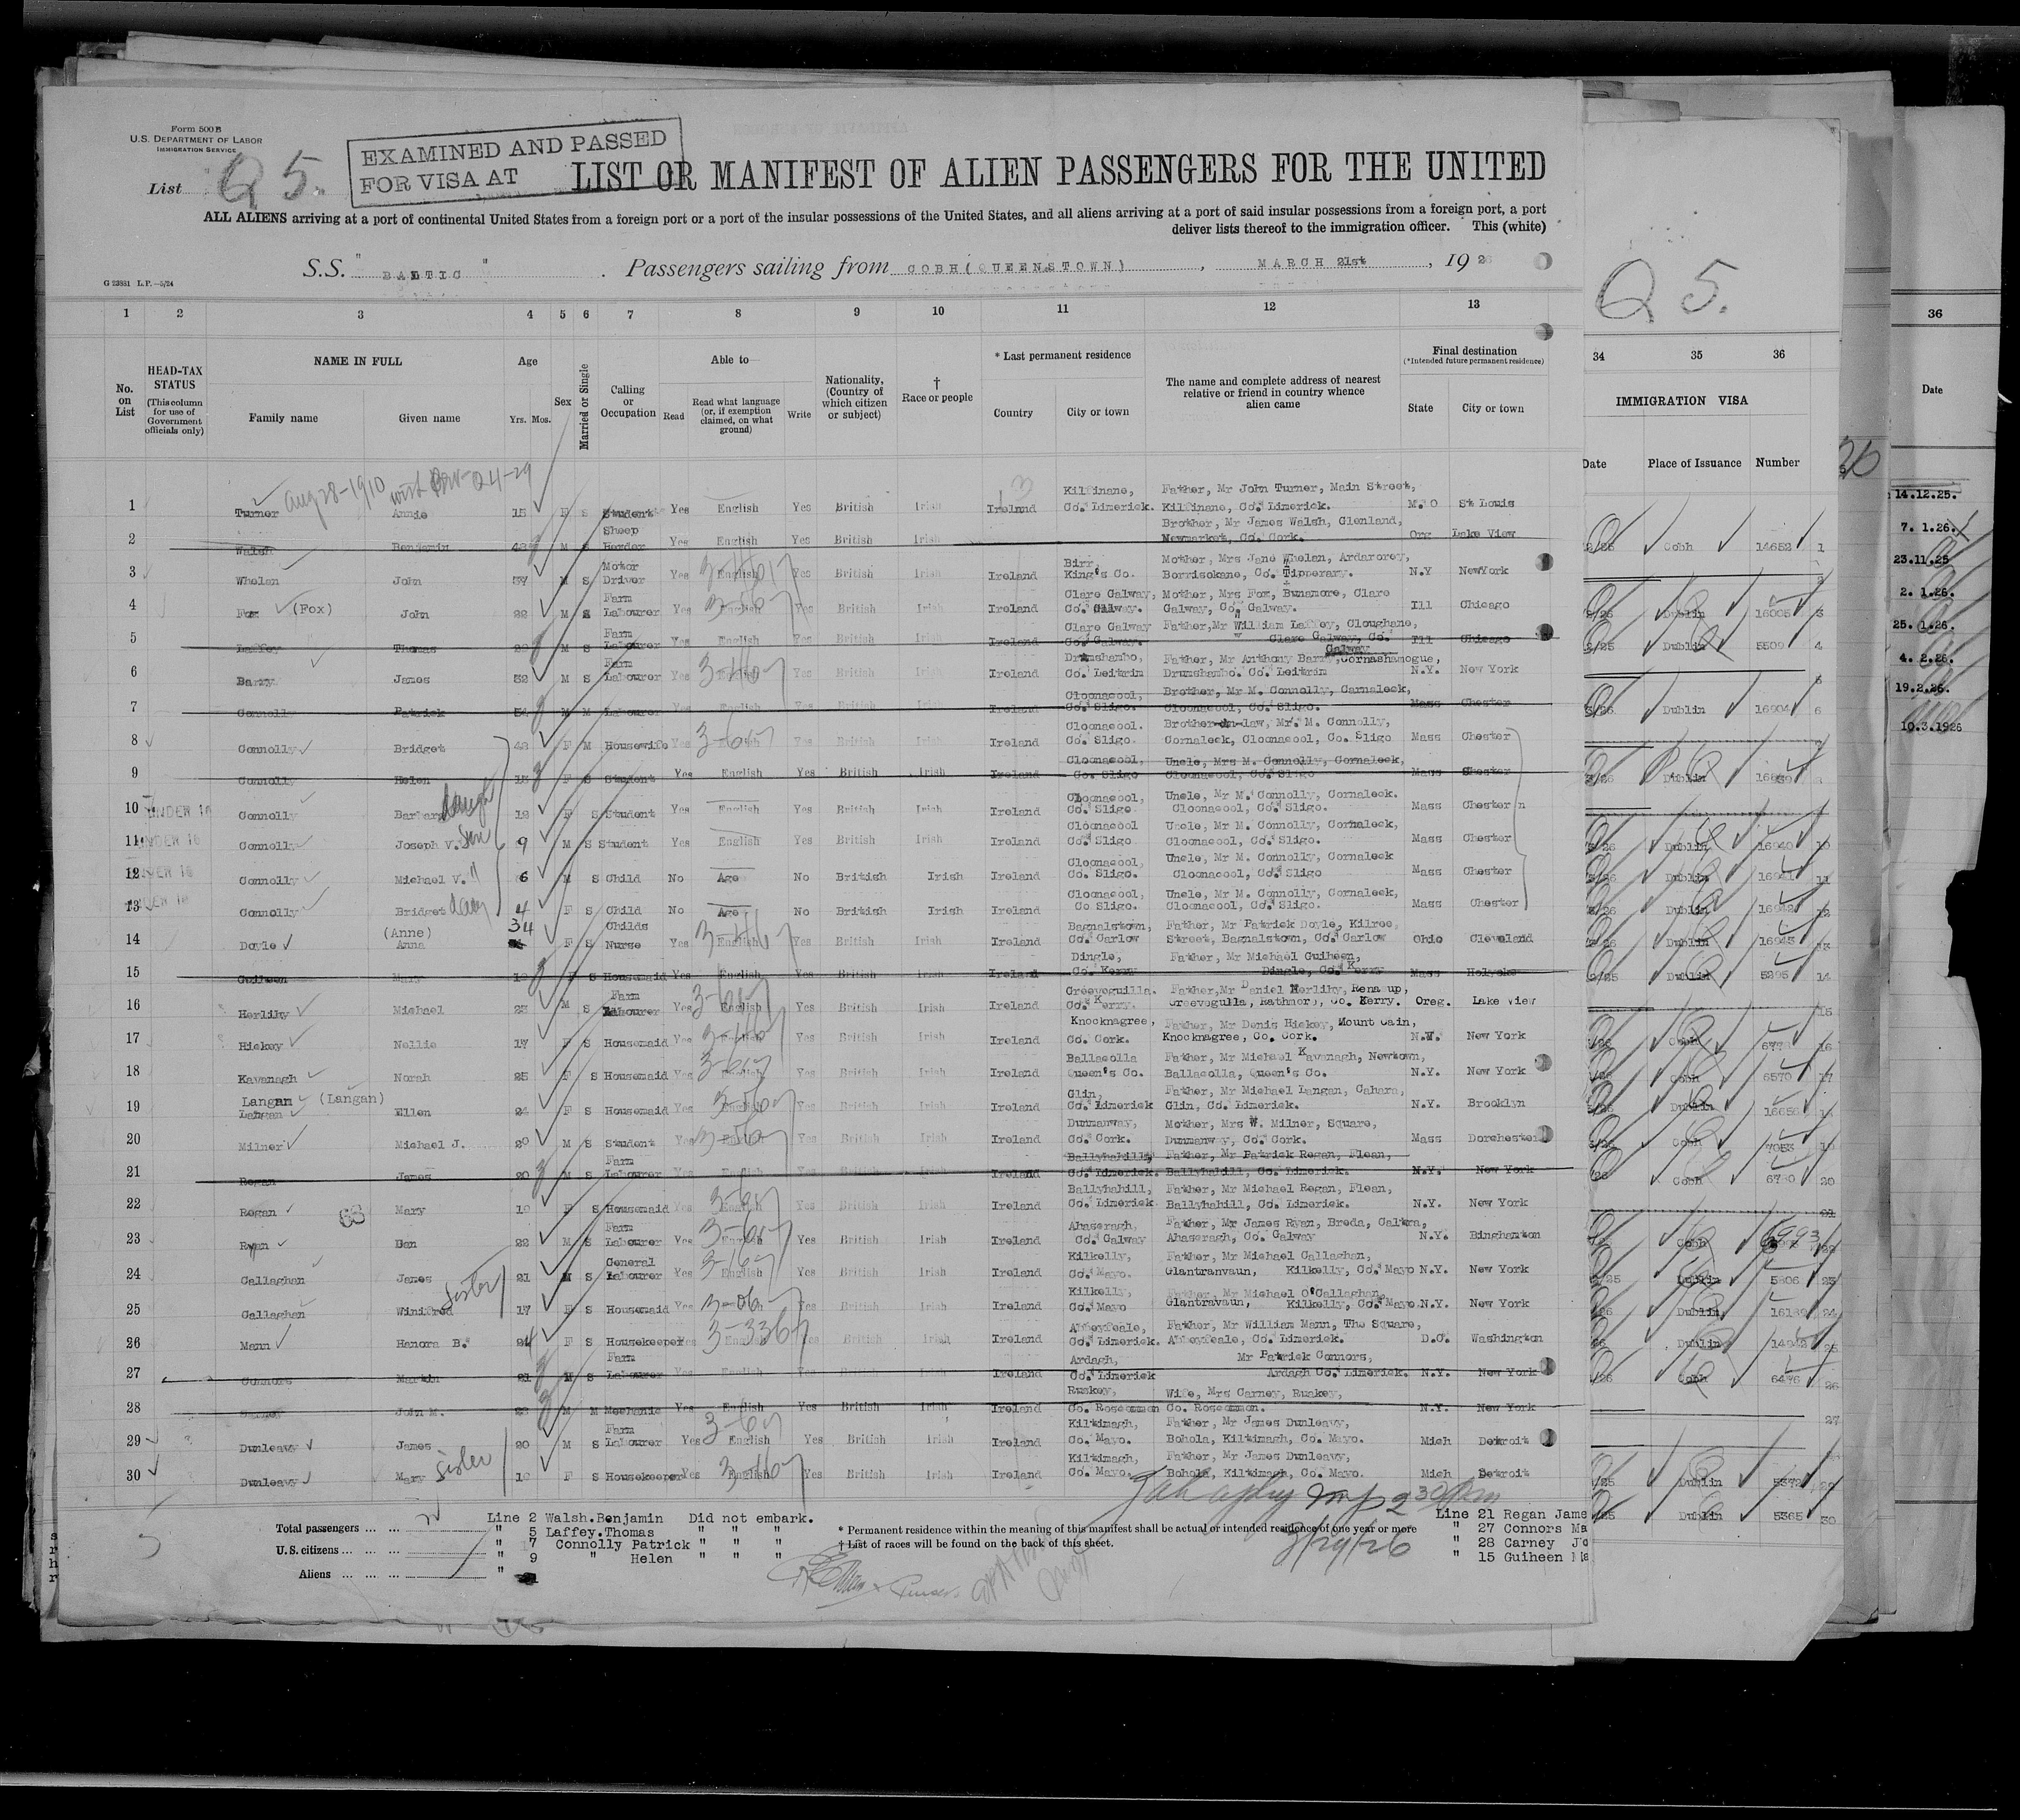 Form 500 B
U.S. DEPARTMENT OF LABOR
IMMIGRATION SERVICE
List Q 5.
EXAMINED AND PASSED
FOR VISA AT
LIST OR MANIFEST OF ALIEN PASSENGERS FOR THE UNITED
ALL ALIENS arriving at a port of continental United States from a foreign port or a port of the insular possessions of the United States, and all aliens arriving at a port of said insular possessions from a foreign port, a port
deliver lists thereof to the immigration officer. This (white)
S.S. "BALTIC". Passengers sailing from COBH (QUEENSTOWN), MARCH 21st, 1926
G 23881 L.P.—5/24
Q 5.
1 2 3 4 5 6 7 8 9 10 11 12 13 34 35 36 36
No. on List
HEAD-TAX STATUS (This column for use of Government officials only)
NAME IN FULL
Family name Given name
Age
Yrs. Mos.
Sex
Married or Single
Calling or Occupation
Able to—
Read
Read what language (or, if exemption claimed, on what ground)
Write
Nationality, (Country of which citizen or subject)
† Race or people
* Last permanent residence
Country City or town
The name and complete address of nearest relative or friend in country whence alien came
Final destination
(*Intended future permanent residence)
State City or town
IMMIGRATION VISA
Date Place of Issuance Number
Date
Aug 28-1910
1 Turner Annie 15 F S Student Yes English Yes British Irish Ireland Kilfinane, Co. Limerick. Father, Mr John Turner, Main Street, Kilfinane, Co. Limerick. M.O St Louis
2 Walsh Benjamin M S Sheep Herder Yes English Yes British Irish Brother, Mr James Walsh, Clenland, Newmarket, Co. Cork. Org Lake View
3 Whelan John M S Motor Driver Yes English Yes British Irish Ireland Birr, King's Co. Mother, Mrs Jane Whelan, Ardarorey, Borrisokane, Co. Tipperary. N.Y NewYork
4 Fox (Fox) John 22 M S Farm Labourer Yes English Yes British Irish Ireland Clare Galway, Co. Galway. Mother, Mrs Fox, Bunamore, Clare Galway, Co. Galway. Ill Chicago
5 Laffey Thomas M S Farm Labourer Yes English Yes British Irish Ireland Clare Galway Co. Galway. Father, Mr William Laffey, Cloughane, Clare Galway, Co. Galway Ill Chicago
6 Barry James 32 M S Farm Labourer Yes English Yes British Irish Ireland Drumshambo, Co. Leitrim Father, Mr Anthony Barry, Cornashamogue, Drumshambo. Co. Leitrim N.Y. New York
7 Connolly Patrick 54 M M Labourer Yes English Yes British Irish Ireland Cloonacool, Co. Sligo. Brother, Mr M. Connolly, Carnaleck, Cloonacool, Co. Sligo. Mass Chester
8 Connolly Bridget 42 F M Housewife Yes English Yes British Irish Ireland Cloonacool. Co. Sligo. Brother-in-law, Mr. M. Connolly, Cornaleck, Cloonacool, Co. Sligo Mass Chester
9 Connolly Helen 15 F S Student Yes English Yes British Irish Ireland Cloonacool, Co. Sligo Uncle, Mrs M. Connolly, Cornaleck, Cloonacool, Co. Sligo Mass Chester
10 UNDER 16 Connolly Barbara daug 12 F S Student Yes English Yes British Irish Ireland Cloonacool, Co. Sligo Uncle, Mr M. Connolly, Cornaleck. Cloonacool, Co. Sligo. Mass Chester
11 UNDER 16 Connolly Joseph V. Son 9 M S Student Yes English Yes British Irish Ireland Cloonacool Co. Sligo Uncle, Mr M. Connolly, Cornaleck, Cloonacool, Co. Sligo. Mass Chester
12 UNDER 16 Connolly Michael V. " 6 M S Child No Age No British Irish Ireland Cloonacool, Co. Sligo. Uncle, Mr M. Connolly, Cornaleck Cloonacool, Co. Sligo Mass Chester
13 UNDER 16 Connolly Bridget daug 4 F S Child No Age No British Irish Ireland Cloonacool, Co Sligo. Uncle, Mr M. Connolly, Cornaleck, Cloonacool, Co. Sligo. Mass Chester
14 Doyle (Anne) Anna 34 F S Childs Nurse Yes English Yes British Irish Ireland Bagnalstown, Co. Carlow Father, Mr Patrick Doyle, Kilree, Street, Bagnalstown, Co. Carlow Ohio Cleveland
15 Guiheen Mary F S Housemaid Yes English Yes British Irish Ireland Dingle, Co. Kerry Father, Mr Michael Guiheen, Dingle, Co. Kerry Mass Holyoke
16 Herlihy Michael M S Farm Labourer Yes English Yes British Irish Ireland Greeveguilla. Co. Kerry. Father, Mr Daniel Herlihy, Renaup, Greevegulla, Rathmore, Co. Kerry. Oreg. Lake View
17 Hickey Nellie 17 F S Housemaid Yes English Yes British Irish Ireland Knocknagree, Co. Cork. Father, Mr Denis Hickey, Mount Cain, Knocknagree, Co. Cork. N.Y. New York
18 Kavanagh Norah 25 F S Housemaid Yes English Yes British Irish Ireland Ballacolla Queen's Co. Father, Mr Michael Kavanagh, Newtown, Ballacolla, Queen's Co. N.Y. New York
19 Langan Langan (Langan) Ellen 24 F S Housemaid Yes English Yes British Irish Ireland Glin, Co. Limerick Father, Mr Michael Langan, Cahara, Glin, Co. Limerick. N.Y. Brooklyn
20 Milner Michael J. 20 M S Student Yes English Yes British Irish Ireland Dunmanway, Co. Cork. Mother, Mrs W. Milner, Square, Dunmanway, Co. Cork. Mass Dorchester
21 Regan James 20 M S Farm Labourer Yes English Yes British Irish Ireland Ballyhahill, Co. Limerick. Father, Mr Patrick Regan, Flean, Ballyhahill, Co. Limerick. N.Y. New York
22 Regan Mary F S Housemaid Yes English Yes British Irish Ireland Ballyhahill, Co. Limerick Father, Mr Michael Regan, Flean, Ballyhahill, Co. Limerick. N.Y. New York
23 Ryan Dan 22 M S Farm Labourer Yes English Yes British Irish Ireland Ahascragh, Co. Galway Father, Mr James Ryan, Breda, Caltra, Ahascragh, Co. Galway N.Y. Binghamton
24 Callaghan James 21 M S General Labourer Yes English Yes British Irish Ireland Kilkelly, Co. Mayo. Father, Mr Michael Callaghan, Glantranvaun, Kilkelly, Co. Mayo N.Y. New York
25 Callaghan Winifred sister 17 F S Housemaid Yes English Yes British Irish Ireland Kilkelly, Co. Mayo Father, Mr Michael O'Callaghan, Glantravaun, Kilkelly, Co. Mayo. N.Y. New York
26 Mann Hanora B. 24 F S Housekeeper Yes English Yes British Irish Ireland Abbeyfeale, Co. Limerick. Father, Mr William Mann, The Square, Abbeyfeale, Co. Limerick. D.C. Washington
27 Connors Martin 21 M S Farm Labourer Yes English Yes British Irish Ireland Ardagh, Co. Limerick Mr Patrick Connors, Ardagh Co. Limerick. N.Y. New York
28 John M. M M Mechanic Yes English Yes British Irish Ireland Ruskey, Co. Roscommon Wife, Mrs Carney, Ruskey, Co. Roscommon. N.Y. New York
29 Dunleavy James 20 M S Farm Labourer Yes English Yes British Irish Ireland Kiltimagh, Co. Mayo. Father, Mr James Dunleavy, Bohola, Kiltimagh, Co. Mayo. Mich Detroit
30 Dunleavy Mary sister F S Housekeeper Yes English Yes British Irish Ireland Kiltimagh, Co. Mayo. Father, Mr James Dunleavy, Bohola, Kiltimagh, Co. Mayo. Mich Detroit
Cobh 14652 1
Dublin 16005 3
Dublin 5509 4
Dublin 16904 6
Dublin
Dublin 16940 10
Dublin 11
Dublin 16942 12
Dublin 16943 13
Dublin 5295 14
Cobh 16
Cobh 6570 17
Dublin 16656 18
Cobh 7053 19
Cobh 6780 20
Cobh 6993 22
Dublin 5806 23
Dublin 24
Dublin 25
Cobh 6476 26
27
Dublin 5372 29
Dublin 5365 30
14.12.25.
7. 1.26.
23.11.25
2. 1.26.
25. 1.26.
4. 2.26.
19.2.26.
10.3.1926
Total passengers
U.S. citizens
Aliens
Line 2 Walsh.Benjamin Did not embark.
" 5 Laffey.Thomas " " "
" 7 Connolly Patrick " " "
" 9 " Helen " " "
* Permanent residence within the meaning of this manifest shall be actual or intended residence of one year or more
† List of races will be found on the back of this sheet.
3/29/26
Line 21 Regan Jame
" 27 Connors Ma
" 28 Carney Jo
" 15 Guiheen Ma